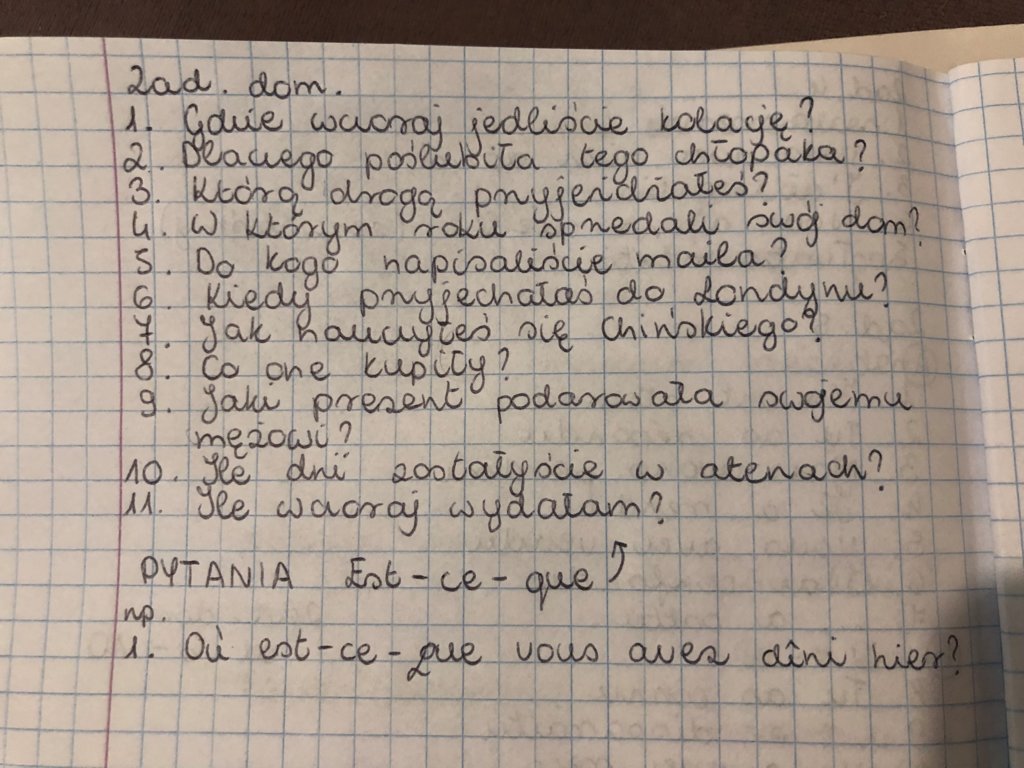 Zad. dom.
1. Gdzie wczoraj jedliście kolację?
2. Dlaczego poślubiła tego chłopaka?
3. Którą drogą przyjeżdżałeś?
4. W którym roku sprzedali swój dom?
5. Do kogo napisaliście maila?
6. Kiedy przyjechałaś do Londynu?
7. Jak nauczyłeś się chińskiego?
8. Co one kupiły?
9. Jaki prezent podarowała swojemu
mężowi?
10. Ile dni zostałyście w atenach?
11. Ile wczoraj wydałam?
PYTANIA Est-ce-que
np.
1. Où est-ce-que vous avez dîni hier?